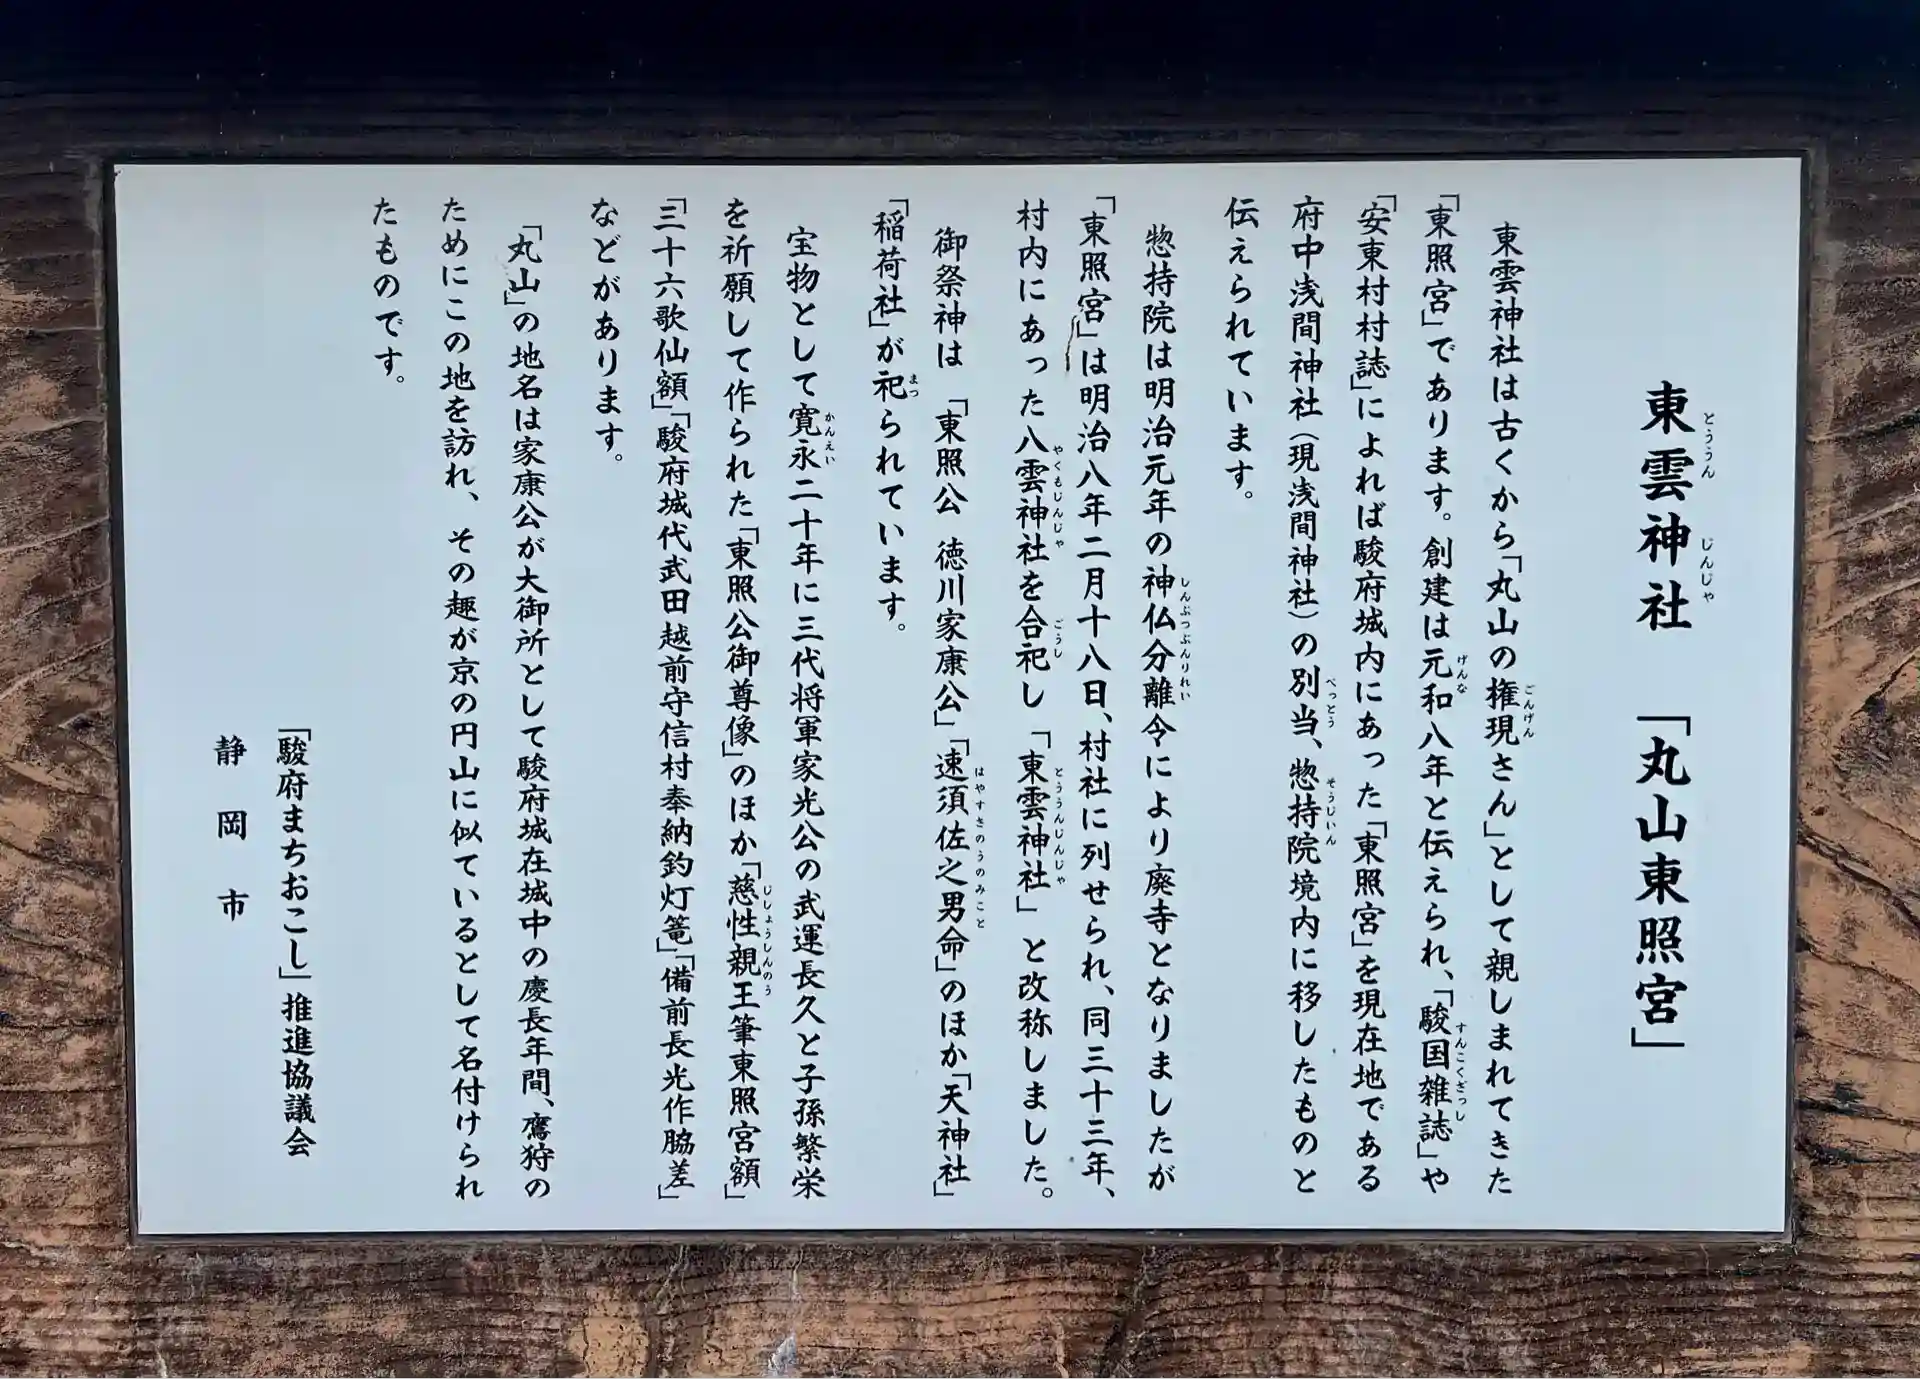 東雲神社 「丸山東照宮」
とううん じんじゃ
東雲神社は古くから「丸山の権現さん」として親しまれてきた
ごんげん
「東照宮」であります。創建は元和八年と伝えられ、「駿国雑誌」や
げんな すんこくざっし
「安東村村誌」によれば駿府城内にあった「東照宮」を現在地である
府中浅間神社(現浅間神社)の別当、惣持院境内に移したものと
べっとう そうじいん
伝えられています。
惣持院は明治元年の神仏分離令により廃寺となりましたが
しんぶつぶんりれい
「東照宮」は明治八年二月十八日、村社に列せられ、同三十三年、
村内にあった八雲神社を合祀し「東雲神社」と改称しました。
やくもじんじゃ ごうし とううんじんじゃ
御祭神は「東照公 徳川家康公」「速須佐之男命」のほか「天神社」
はやすさのうのみこと
「稲荷社」が祀られています。
まつ
宝物として寛永二十年に三代将軍家光公の武運長久と子孫繁栄
かんえい
を祈願して作られた「東照公御尊像」のほか「慈性親王筆東照宮額」
じしょうしんのう
「三十六歌仙額」「駿府城代武田越前守信村奉納釣灯篭」「備前長光作脇差」
などがあります。
「丸山」の地名は家康公が大御所として駿府城在城中の慶長年間、鷹狩の
ためにこの地を訪れ、その趣が京の円山に似ているとして名付けられ
たものです。
「駿府まちおこし」推進協議会
静岡市